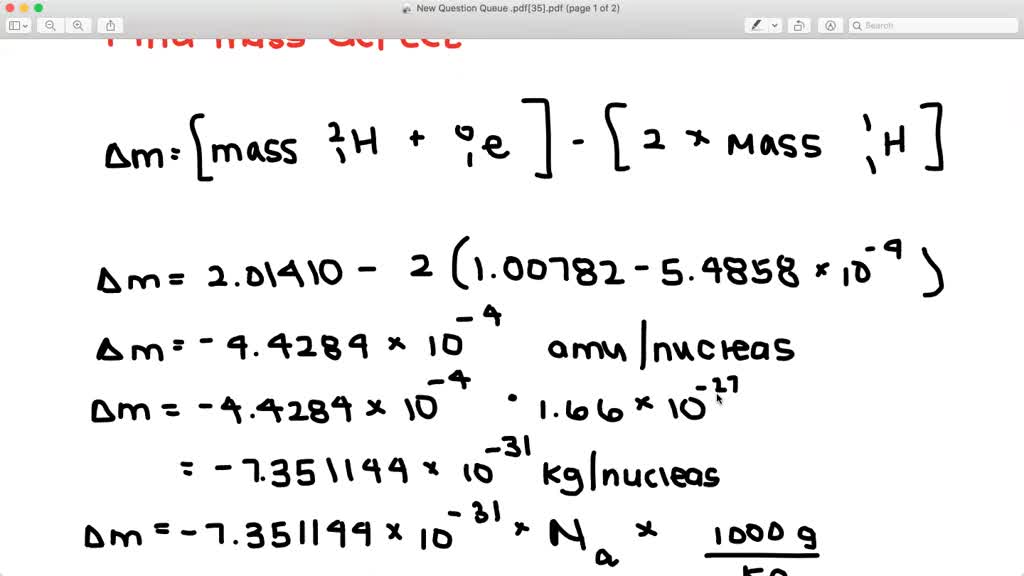 New Question Queue .pdf[35].pdf (page 1 of 2)
Search
Find mass defect
Δm = [mass ²₁H + ⁰₁e] - [2 × mass ¹₁H]
Δm = 2.01410 - 2 (1.00782 - 5.4858 × 10⁻⁴)
Δm = -4.4284 × 10⁻⁴ amu/nucleas
Δm = -4.4284 × 10⁻⁴ · 1.66 × 10⁻²⁷
= -7.351144 × 10⁻³¹ kg/nucleas
Δm = -7.351144 × 10⁻³¹ × Nₐ × 1000 g